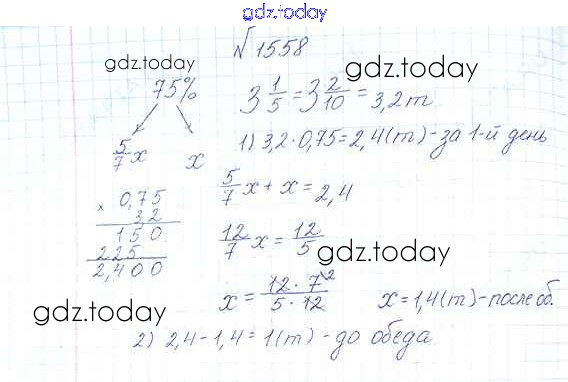 gdz.today
№1558
gdz.today
75%
gdz.today
3 1/5 = 3 2/10 = 3,2 т
5/7 x    x
1) 3,2 · 0,75 = 2,4 (т) - за 1-й день
× 0,75
3,2
150
225
2,400
5/7 x + x = 2,4
gdz.today
12/7 x = 12/5
gdz.today
gdz.today
x = 12 · 7 / 5 · 12
x = 1,4 (т) - после об.
2) 2,4 - 1,4 = 1 (т) - до обеда
gdz.today